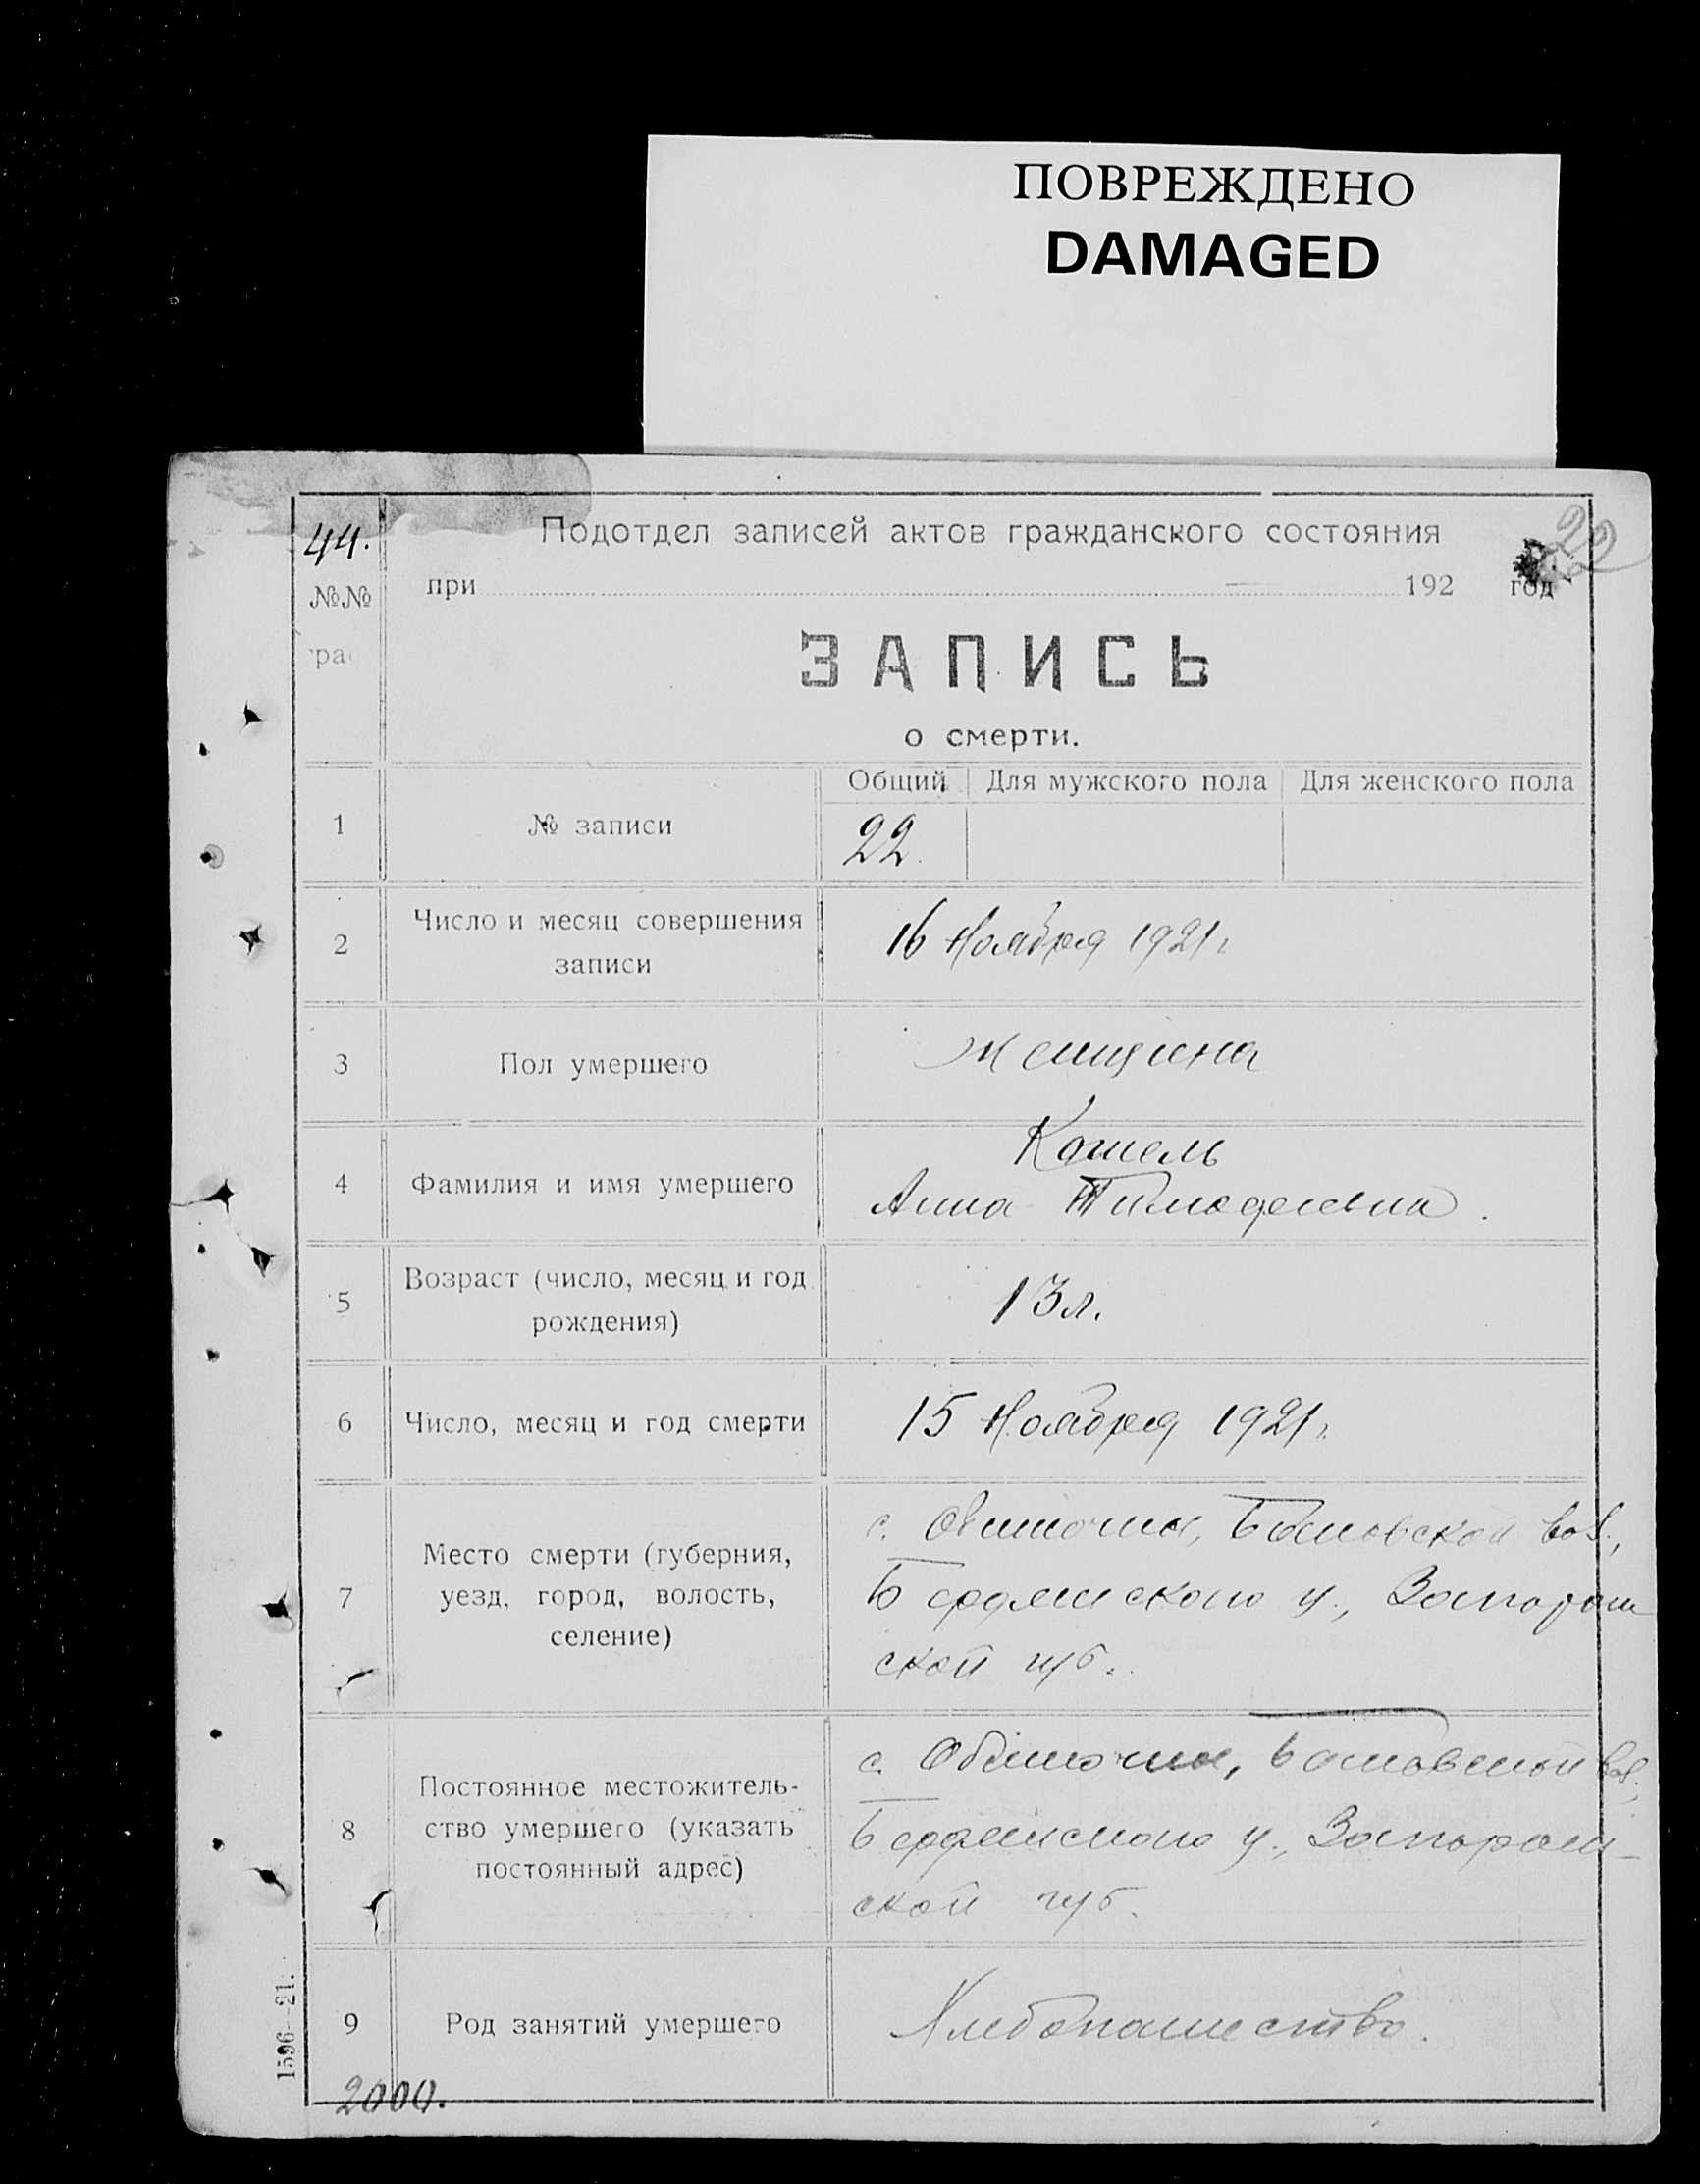 ПОВРЕЖДЕНО
DAMAGED
44.
22
Подотдел записей актов гражданского состояния
№№
при 192 год
ЗАПИСЬ
о смерти.
Общий Для мужского пола Для женского пола
1 № записи 22.
2 Число и месяц совершения записи
16 Ноября 1921 г.
3 Пол умершего женщина
4 Фамилия и имя умершего
Кошель
Анна Тимофеевна.
5 Возраст (число, месяц и год рождения)
13 л.
6 Число, месяц и год смерти 15 Ноября 1921 г.
7 Место смерти (губерния, уезд, город, волость, селение)
с. вол.,
Бердянского у., Запорож
ской губ.
8 Постоянное местожитель-
ство умершего (указать
постоянный адрес)
с. вол.,
Бердянского у., Запорож-
ской губ.
9 Род занятий умершего Хлебопашество.
1596-21.
2000.